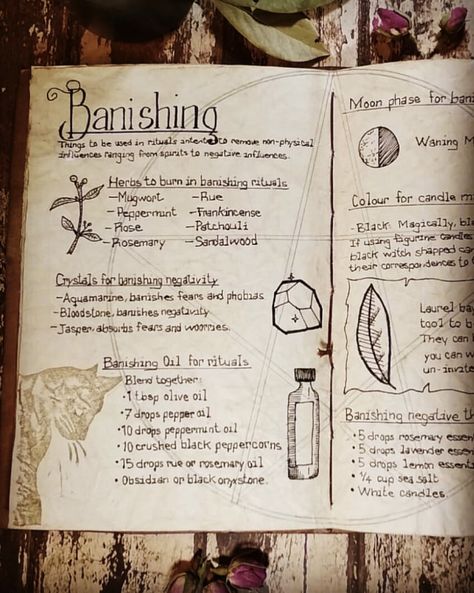 Banishing
Things to be used in rituals intented to remove non-physical
influences ranging from spirits to negative influences.
Herbs to burn in banishing rituals
-Mugwort -Rue
-Peppermint -Frankincense
-Rose -Patchouli
-Rosemary -Sandalwood
Crystals for banishing negativity
-Aquamarine, banishes fears and phobias
-Bloodstone, banishes negativity
-Jasper, absorbs fears and worries.
Banishing Oil for rituals
Blend together:
•1 tbsp olive oil
•7 drops pepper oil
•10 drops peppermint oil
•10 crushed black peppercorns
•15 drops rue or rosemary oil
•Obsidian or black onyx stone.
Moon phase for
Waning
Colour for candle
-Black. Magically,
If using figurine candles
black witch shaped
their correspondences to
Laurel
tool to
They can
you can
un-invite
Banishing negative
•5 drops rosemary
•5 drops lavender
•5 drops lemon
•¼ cup sea salt
•White candles.